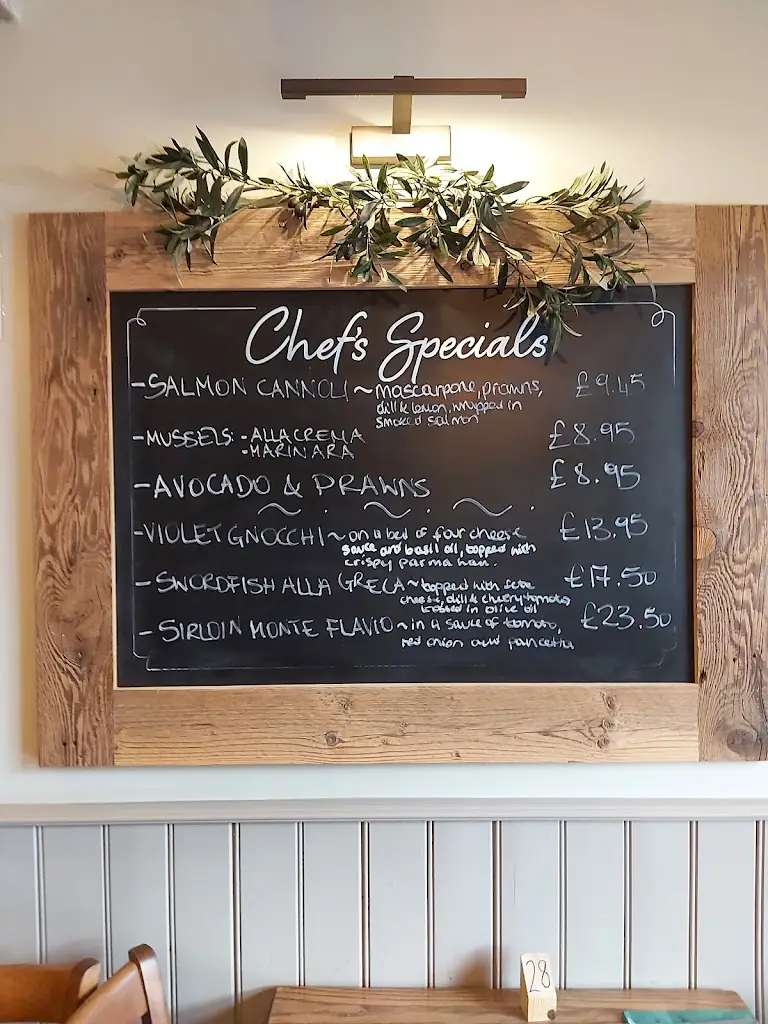 Chef's Specials
-SALMON CANNOLI ~ mascarpone, prawns, £9.45
dill & lemon, wrapped in
smoked salmon
-MUSSELS: -ALLA CREMA £8.95
-MARINARA
-AVOCADO & PRAWNS £8.95
-VIOLET GNOCCHI ~ on a bed of four cheese £13.95
sauce and basil oil, topped with
crispy parma ham.
-SWORDFISH ALLA GRECA ~ topped with feta £17.50
cheese, dill & cherry tomato,
tossed in olive oil
-SIRLOIN MONTE FLAVIO ~ in a sauce of tomato, £23.50
red onion and pancetta
28